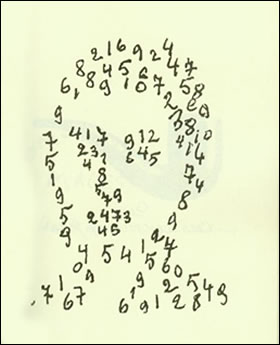 8 2 1 6 9 2 4
8 8 4 5 6 4 7
6, 8 9 1 0 7, 5 8
2 0
9 3 8 0
7 4 1 7 9 1 2 4 1 4
5 2 3 2 6 4 5
4 8 7 4
1 5 7 9 8
9
5 2 4 7 3 9
9 4 5
4 5 4 1 2 4
1 0 9 9 5 6 0
. 7 6 7 6 1 9 1 2 2 8 5 4 9